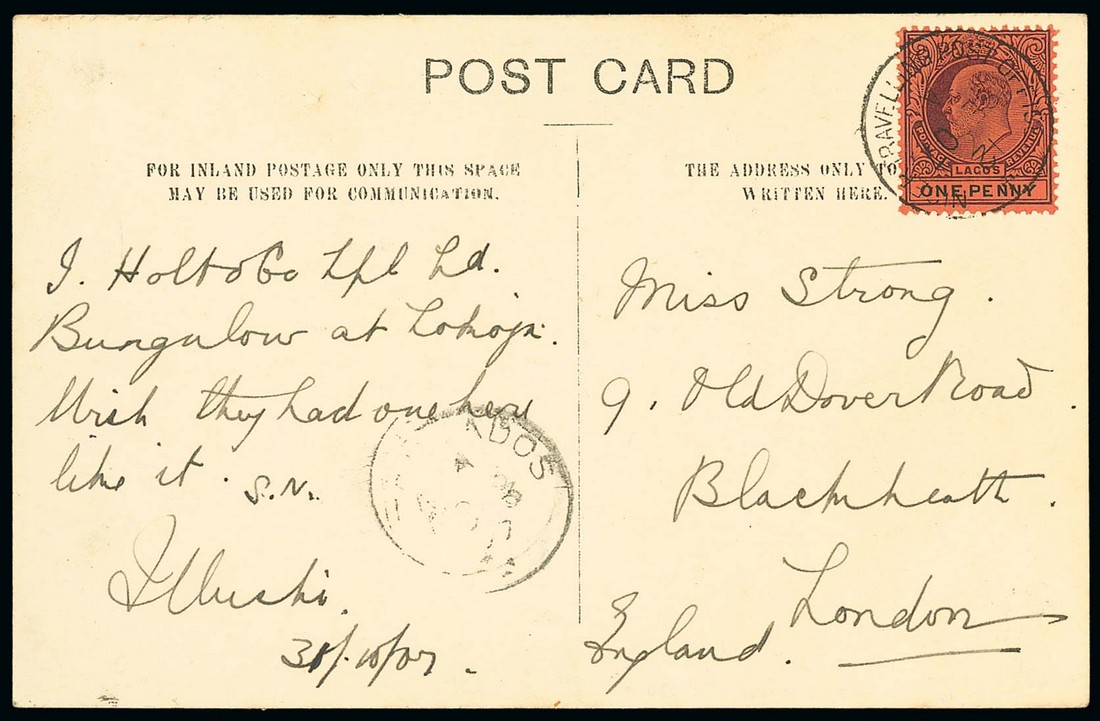 POST CARD
FOR INLAND POSTAGE ONLY THIS SPACE
MAY BE USED FOR COMMUNICATION.
THE ADDRESS ONLY TO
WRITTEN HERE.
TRAVELLING POST OFFICE
POSTAGE
REVENUE
LAGOS
ONE PENNY
J. Holt & Co Lpl Ld.
Bungalow at Lokoja.
Wish they had one here
like it. S.N.
Illushi.
31/10/07.
Miss Strong.
9. Old Dover Road.
Blackheath.
London
England.